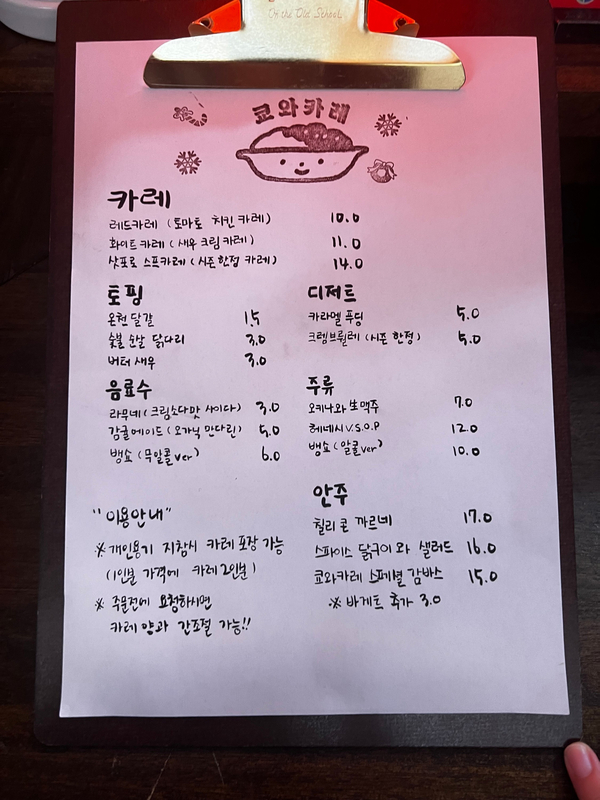 On the Old School
쿄와카레
카레
레드카레 (토마토 치킨 카레) 10.0
화이트카레 (새우 크림카레) 11.0
삿포로 스프카레 (시즌한정 카레) 14.0
토핑
온천달걀 1.5
숯불 순살 닭다리 3.0
버터 새우 3.0
디저트
카라멜 푸딩 5.0
크렘브륄레 (시즌 한정) 5.0
음료수
라무네 (크림소다맛 사이다) 3.0
감귤에이드 (오가닉 만다린) 5.0
뱅쇼 (무알콜ver) 6.0
주류
오키나와 生맥주 7.0
헤네시 V.S.O.P 12.0
뱅쇼 (알콜ver) 10.0
안주
칠리 콘 까르네 17.0
스파이스 닭구이와 샐러드 16.0
쿄와카레 스페셜 감바스 15.0
※ 바게트 추가 3.0
"이용안내"
※ 개인용기 지참시 카레 포장 가능
(1인분 가격에 카레2인분)
※ 주문전에 요청하시면
카레 양과 간조절 가능!!